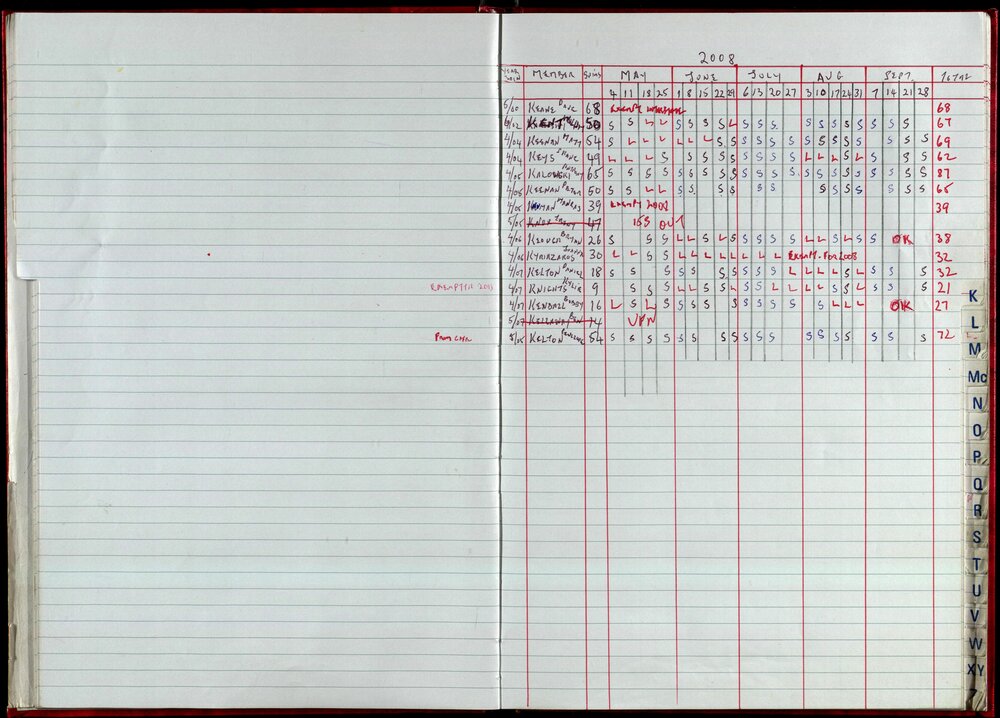 2008
YEAR JOIN MEMBER SWIMS MAY JUNE JULY AUG SEPT TOTAL
4 11 18 25 1 8 15 22 29 6 13 20 27 3 10 17 24 31 7 14 21 28
5/00 KEANE DAVE 68 EXEMPT 68
KENT 50 S S L L S S S S L S S S S S S S S S S S 67
4/04 KEENAN MATT 54 S L L L L L L S S S S S S S S S S S S S S S 69
4/04 KEYS SHANE 49 L L L S S S S S S S S S L L L S L S S S 62
4/05 KALOWSKI 65 S S S S S S S S S S S S S S S S S S S S S S 87
4/05 KEENAN PETER 50 S S L L S S S S S S S S S S S S S 65
4/05 39 EXEMPT 2008 39
5/05 KNOX 47 153 OUT
4/06 KEOUGH BRYAN 26 S S S L L S L S S S S S L L S L S S OK 38
4/06 KYRIAZAKOS 30 L L S S L L L L L L L L EXEMPT FOR 2008 32
4/07 KELTON DANIEL 18 S S S S S S S S S S S L L L L S L S S S 32
EXEMPTED 4/07 KNIGHTS KYLIE 9 S S S L L S S L S S L L L L L S S L S S S 21
4/07 KENDALL BOBBY 16 L S L S S S S S S S S S S L L L OK 27
5/07 KELLAWAY BEN 14 UFN
8/05 KELTON 54 S S S S S S S S S S S S S S S S S 72
K
L
M
Mc
N
O
P
Q
R
S
T
U
V
W
XY
Z